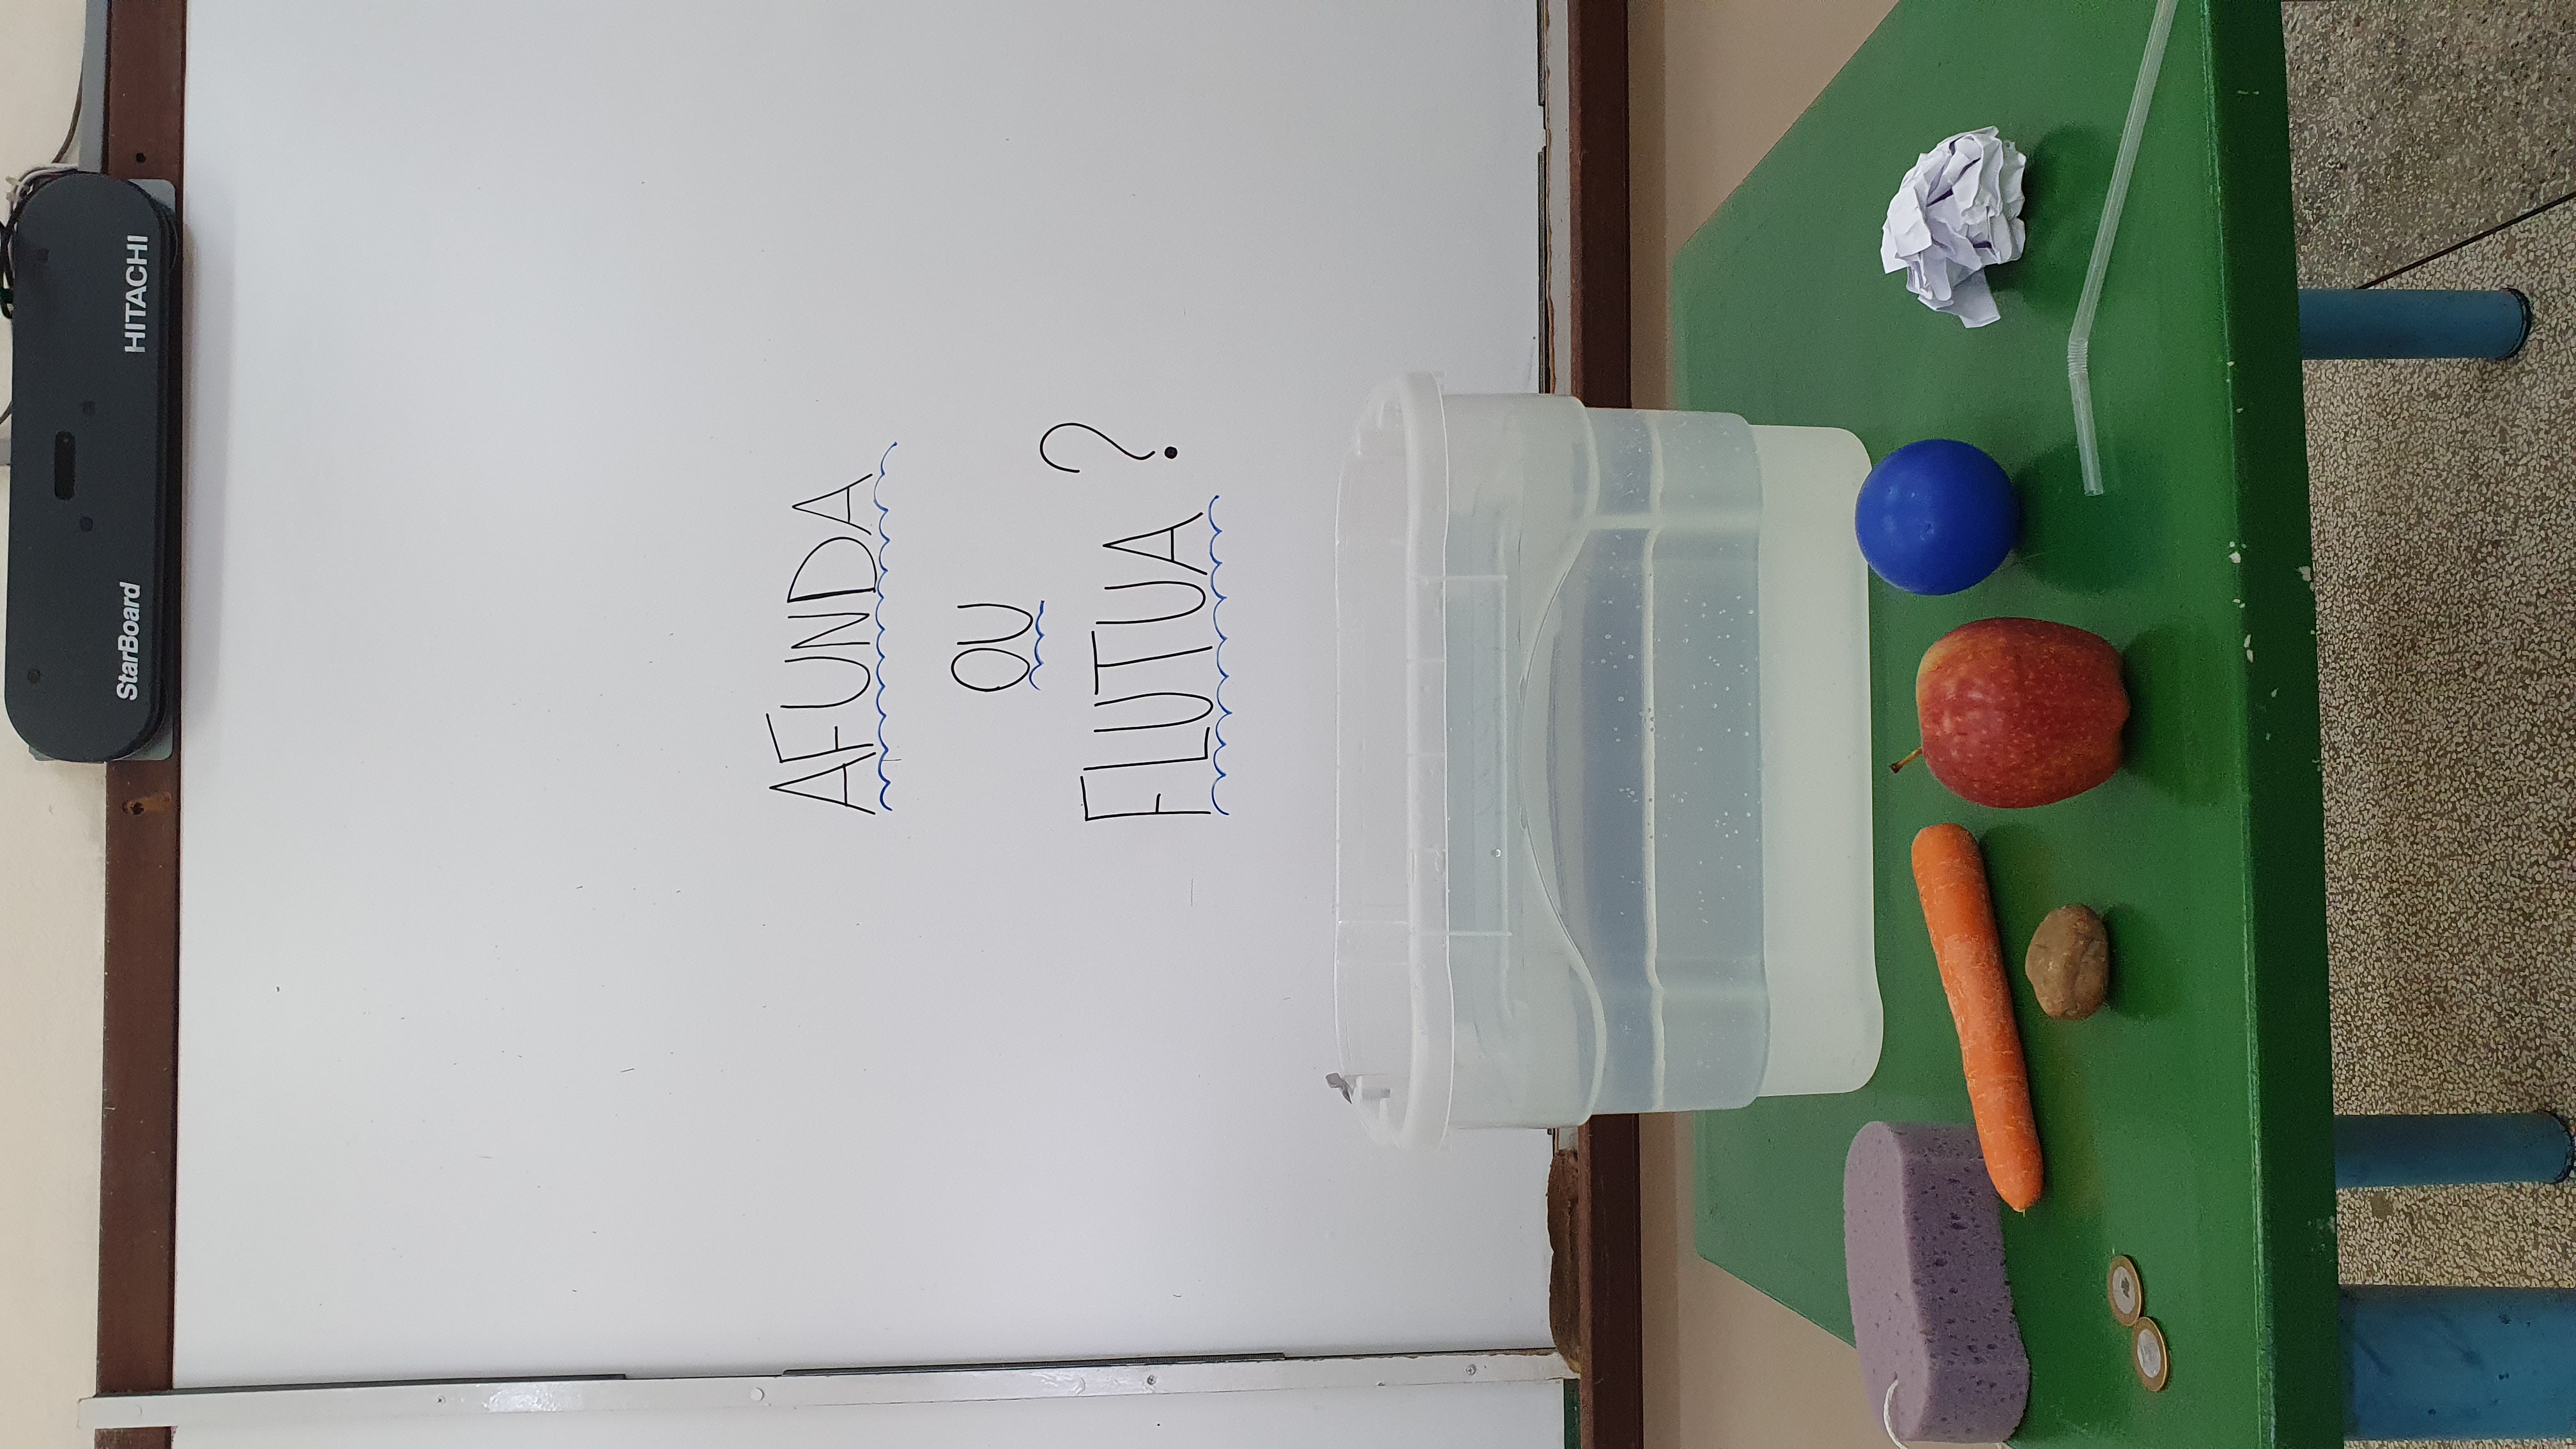 StarBoard HITACHI
AFUNDA
OU
FLUTUA?